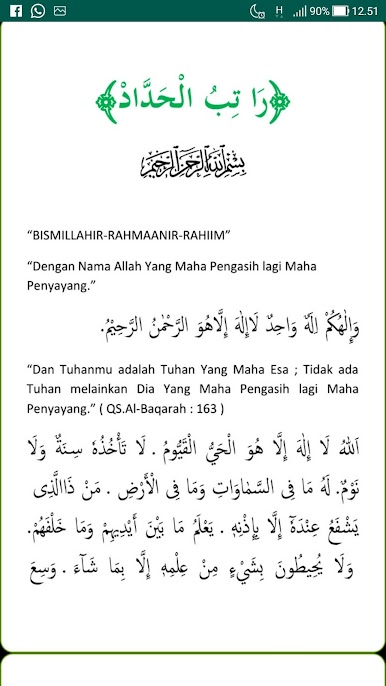 H
90%
12.51
﴿رَا تِبُ الْحَدَّادْ﴾
بِسْمِ اللهِ الرَّحْمٰنِ الرَّحِيْمِ
“BISMILLAHIR-RAHMAANIR-RAHIIM”
“Dengan Nama Allah Yang Maha Pengasih lagi Maha
Penyayang.”
وَإِلٰهُكُمْ اِلَهٌ وَاحِدٌ لَاإِلٰهَ إِلَّاهُوَ الرَّحْمٰنُ الرَّحِيْمُ.
“Dan Tuhanmu adalah Tuhan Yang Maha Esa ; Tidak ada
Tuhan melainkan Dia Yang Maha Pengasih lagi Maha
Penyayang.” ( QS.Al-Baqarah : 163 )
اَللهُ لَا إِلَهَ إِلَّا هُوَ الْحَيُّ الْقَيُّومُ . لَا تَأْخُذُهٗ سِنَةٌ وَلَا
نَوْمٌ. لَهٗ مَا فِى السَّمٰاوَاتِ وَمَا فِى الْأَرْضِ . مَنْ ذَاالَّذِى
يَشْفَعُ عِنْدَهٗٓ إِلَّا بِإِذْنِهٖ . يَعْلَمُ مَا بَيْنَ أَيْدِيهِمْ وَمَا خَلْفَهُمْ.
وَلَا يُحِيطُونَ بِشَيْءٍ مِنْ عِلْمِهٖ إِلَّا بِمَا شَآءَ . وَسِعَ